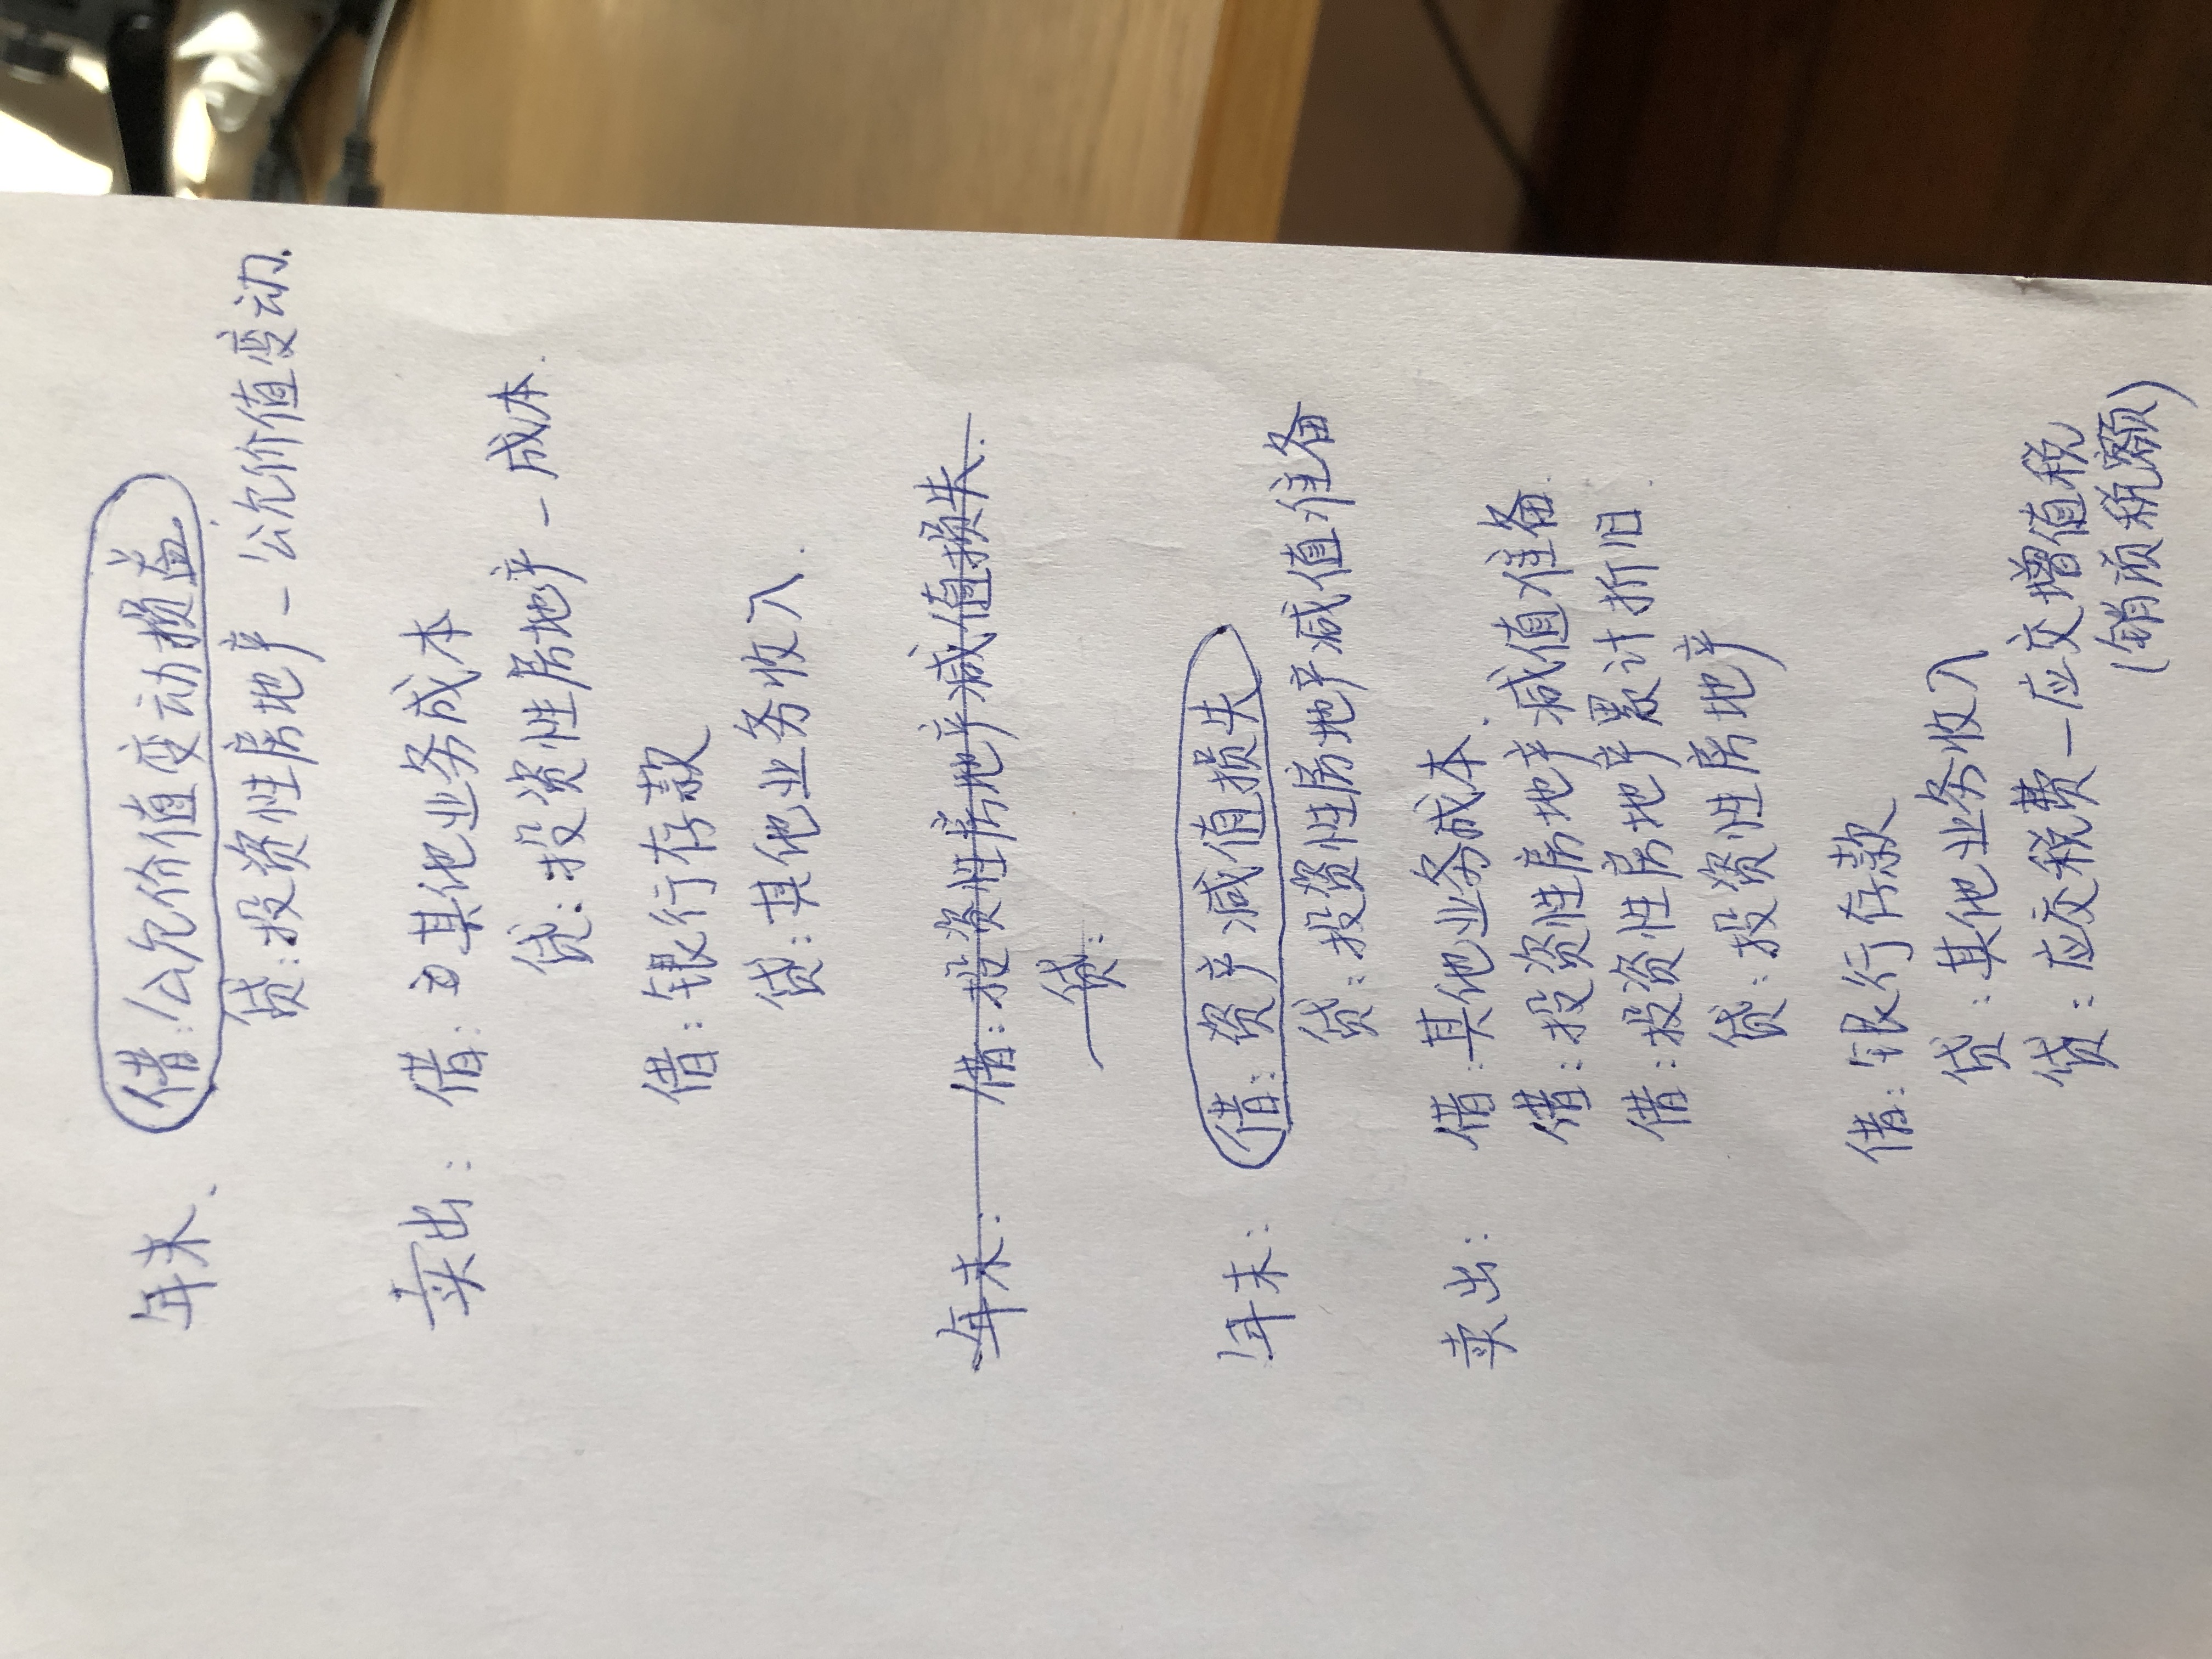 年末、 借:公允价值变动损益.
贷:投资性房地产-公允价值变动.
卖出: 借: 其他业务成本
贷:投资性房地产-成本.
借:银行存款
贷:其他业务收入.
年末: 借:投资性房地产减值损失.
贷:
年末: 借:资产减值损失
贷:投资性房地产减值准备
卖出: 借:其他业务成本.
借:投资性房地产减值准备.
借:投资性房地产累计折旧.
贷:投资性房地产
借:银行存款
贷:其他业务收入
贷:应交税费-应交增值税
(销项税额)